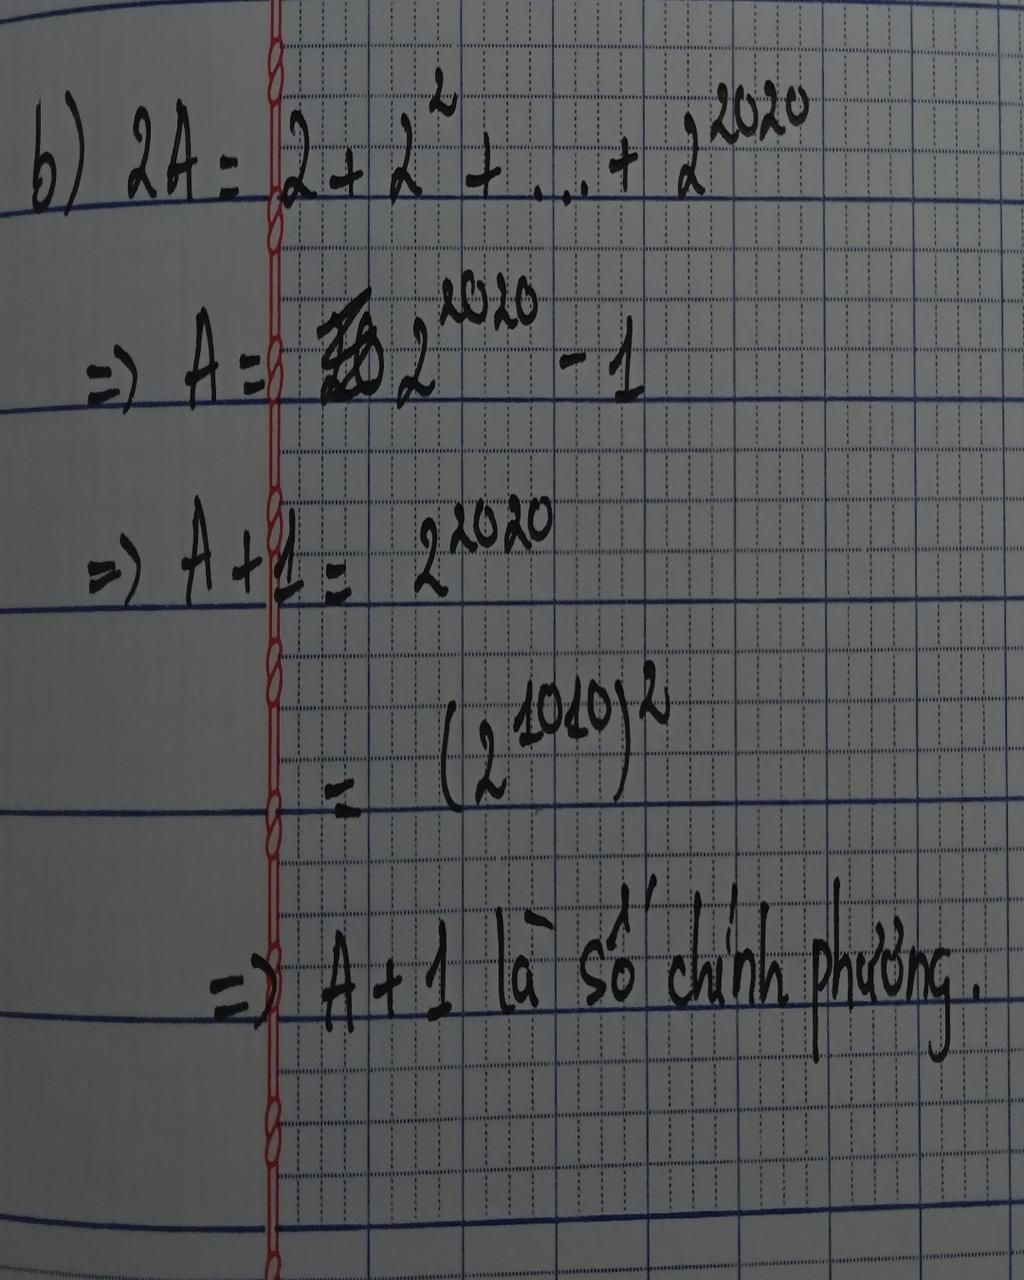 b) 2A = 2 + 2² + ... + 2²⁰²⁰
=> A = 2²⁰²⁰ - 1
=> A + 1 = 2²⁰²⁰
= (2¹⁰¹⁰)²
=> A + 1 là số chính phương.